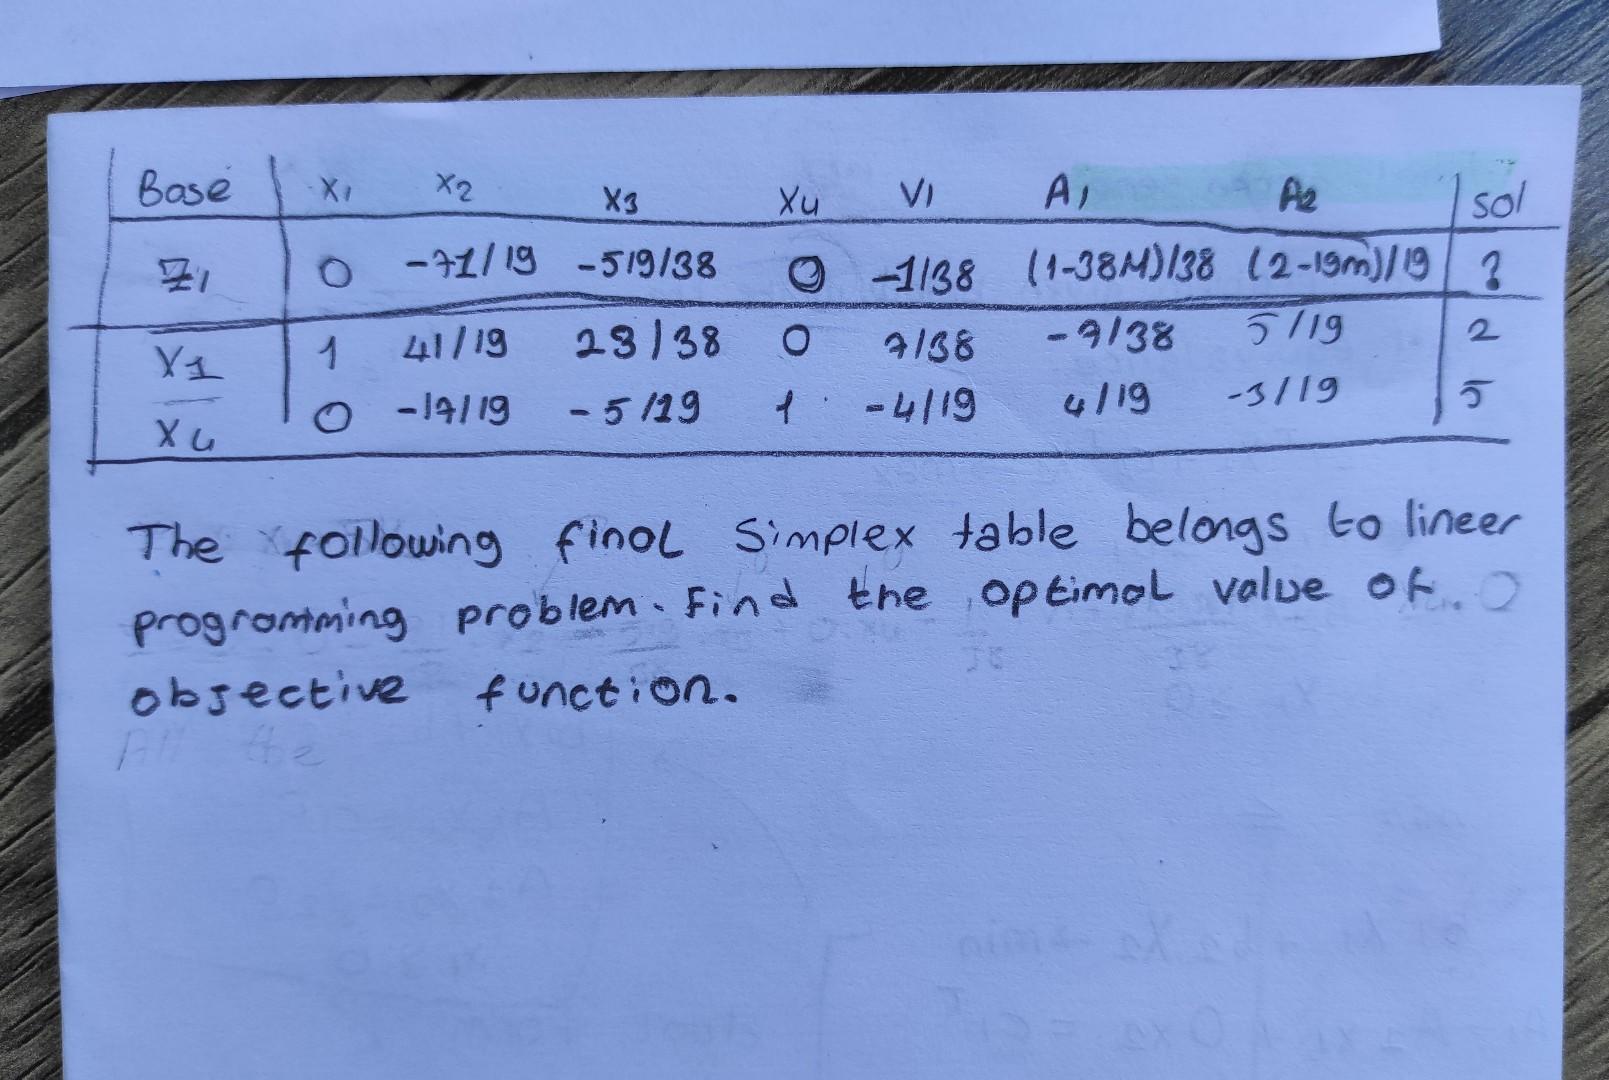 Base x1 x2 x3 x4 V1 A1 A2 sol
Z1 0 -71/19 -519/38 0 -1/38 (1-38M)/38 (2-19m)/19 ?
X1 1 41/19 23/38 0 7/38 -7/38 5/19 2
X4 0 -17/19 -5/19 1 -4/19 4/19 -3/19 5
The following final Simplex table belongs to lineer
programming problem. Find the optimal value of
obsective function.
All the